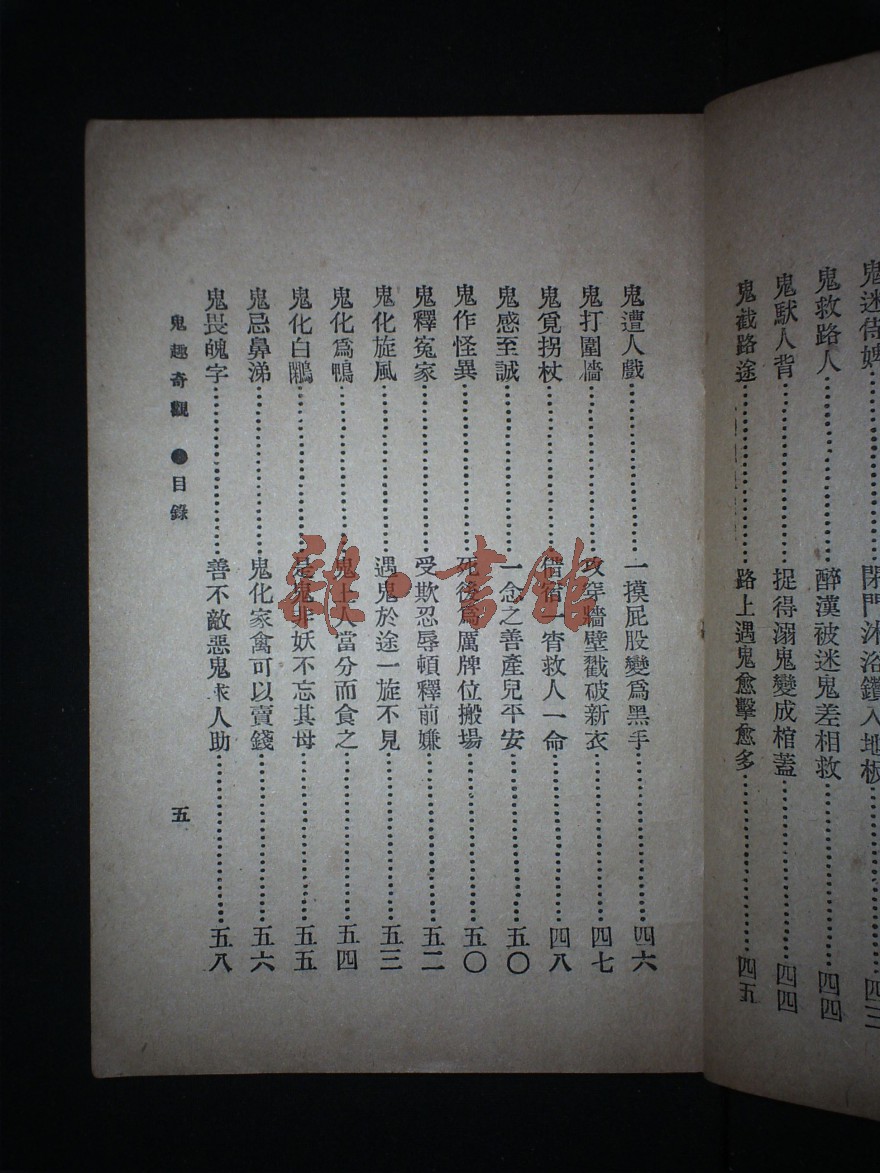 鬼迷侍婢……閉門沐浴鑽入地板……四三
鬼救路人……醉漢被迷鬼差相救……四四
鬼馱人背……捉得溺鬼變成棺蓋……四四
鬼截路途……路上遇鬼愈擊愈多……四五
鬼遭人戲……一摸屁股變爲黑手……四六
鬼打圍墻……攻穿牆壁戳破新衣……四七
鬼覓拐杖……借宿一宵救人一命……四八
鬼感至誠……一念之善產兒平安……五〇
鬼作怪異……死後爲厲牌位搬場……五〇
鬼釋冤家……受欺忍辱頓釋前嫌……五二
鬼化旋風……遇鬼於途一旋不見……五三
鬼化爲鴨……鬼上人當分而食之……五四
鬼化白鷳……是鬼非妖不忘其母……五五
鬼忌鼻涕……鬼化家禽可以賣錢……五六
鬼畏魄字……善不敵惡鬼求人助……五八
鬼趣奇觀 ●目錄 五
雜·書館